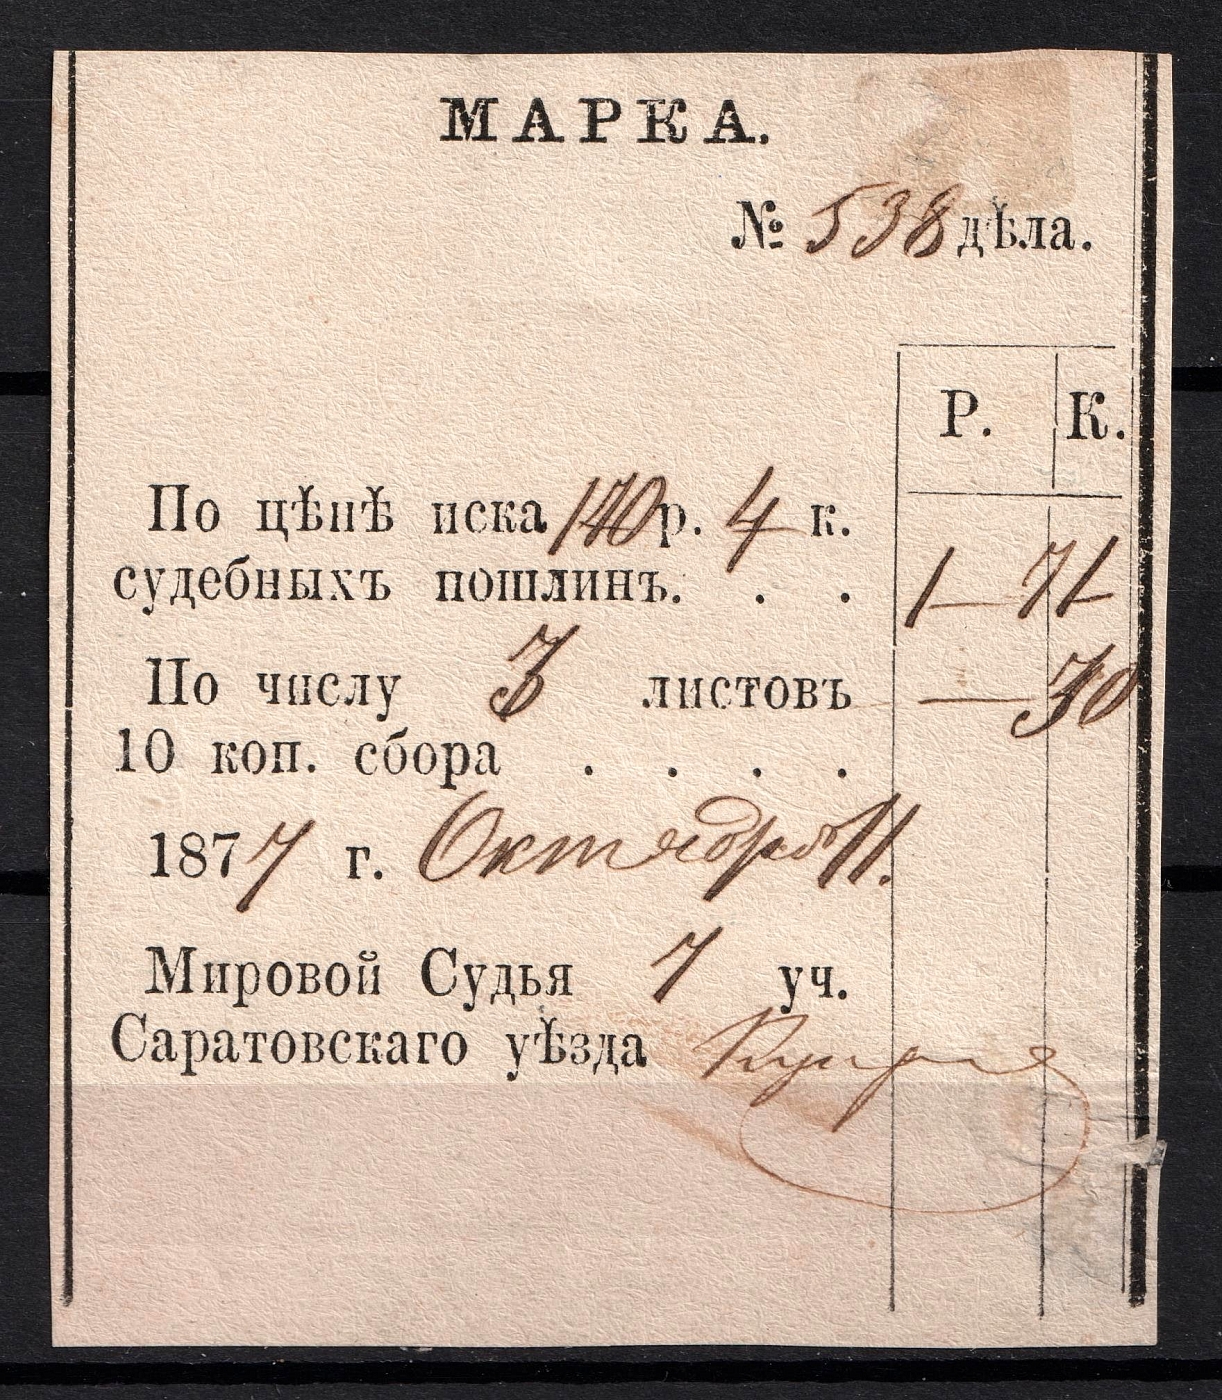 МАРКА.
№ 538 дѣла.
Р. К.
По цѣнѣ иска 170 р. 4 к.
судебныхъ пошлинъ. . . 1 — 71
По числу 3 листовъ — 30
10 коп. сбора . . . .
1877 г. Октября 11.
Мировой Судья 7 уч.
Саратовскаго уѣзда